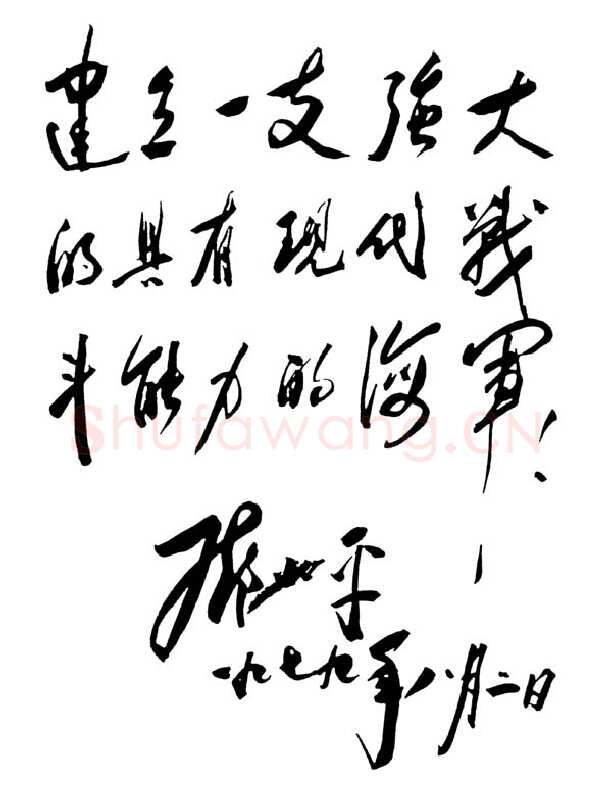 建立一支強大
的具有現代戰
斗能力的海軍!
Shufawang.CN
邓小平
一九七九年八月二日